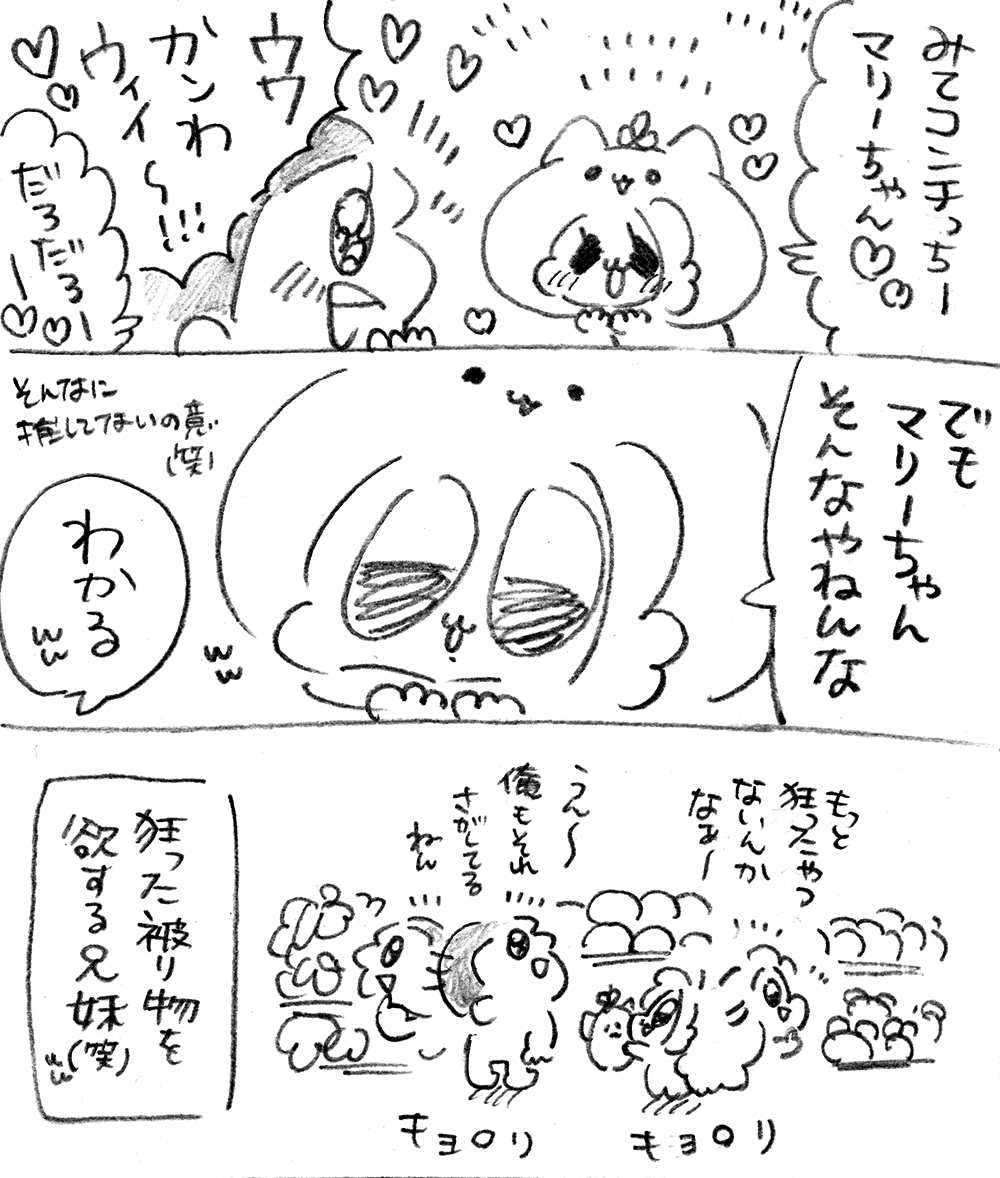 みてコンチっちー
マリーちゃん♡♡
ウウ
カンわ
ウィイ
〜!!!
だろだろー
ー♡♡
でも
マリーちゃん
そんなやねんな
そんなに
推してないの意
(笑)
わかる
ww
ww
もっと
狂ったやつ
ないんか
なぁー
うん〜
俺もそれ
さがしてる
ねん
キョロリ
キョロリ
狂った被り物を
欲する兄妹(笑)
ww